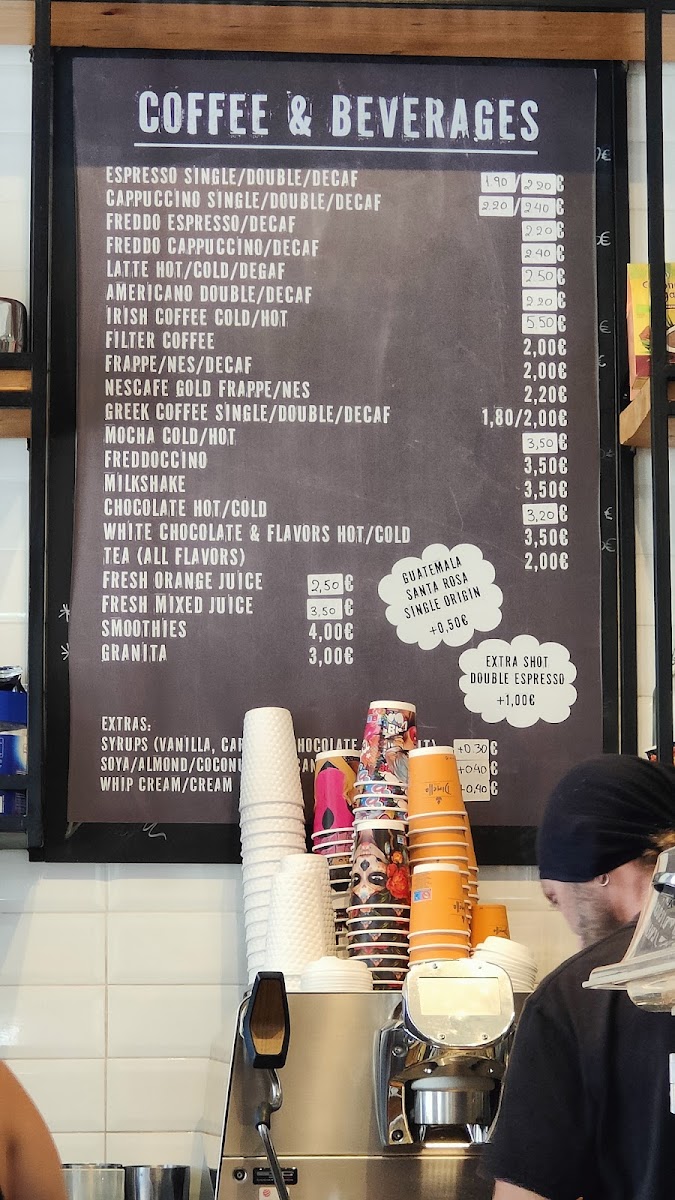 COFFEE & BEVERAGES
ESPRESSO SINGLE/DOUBLE/DECAF 1.90/2.20€
CAPPUCCINO SINGLE/DOUBLE/DECAF 2.20/2.40€
FREDDO ESPRESSO/DECAF 2.20€
FREDDO CAPPUCCINO/DECAF 2.40€
LATTE HOT/COLD/DEGAF 2.50€
AMERICANO DOUBLE/DECAF 2.20€
IRISH COFFEE COLD/HOT 5.50€
FILTER COFFEE 2,00€
FRAPPE/NES/DECAF 2,00€
NESCAFE GOLD FRAPPE/NES 2,20€
GREEK COFFEE SINGLE/DOUBLE/DECAF 1,80/2,00€
MOCHA COLD/HOT 3,50€
FREDDOCCINO 3,50€
MILKSHAKE 3,50€
CHOCOLATE HOT/COLD 3,20€
WHITE CHOCOLATE & FLAVORS HOT/COLD 3,50€
TEA (ALL FLAVORS) 2,00€
FRESH ORANGE JUICE 2,50€
FRESH MIXED JUICE 3,50€
SMOOTHIES 4,00€
GRANITA 3,00€
GUATEMALA
SANTA ROSA
SINGLE ORIGIN
+0,50€
EXTRA SHOT
DOUBLE ESPRESSO
+1,00€
EXTRAS:
SYRUPS (VANILLA, +0.30€
SOYA/ALMOND/COCONU +0.40€
WHIP CREAM/CREAM +0,40€
Dimello